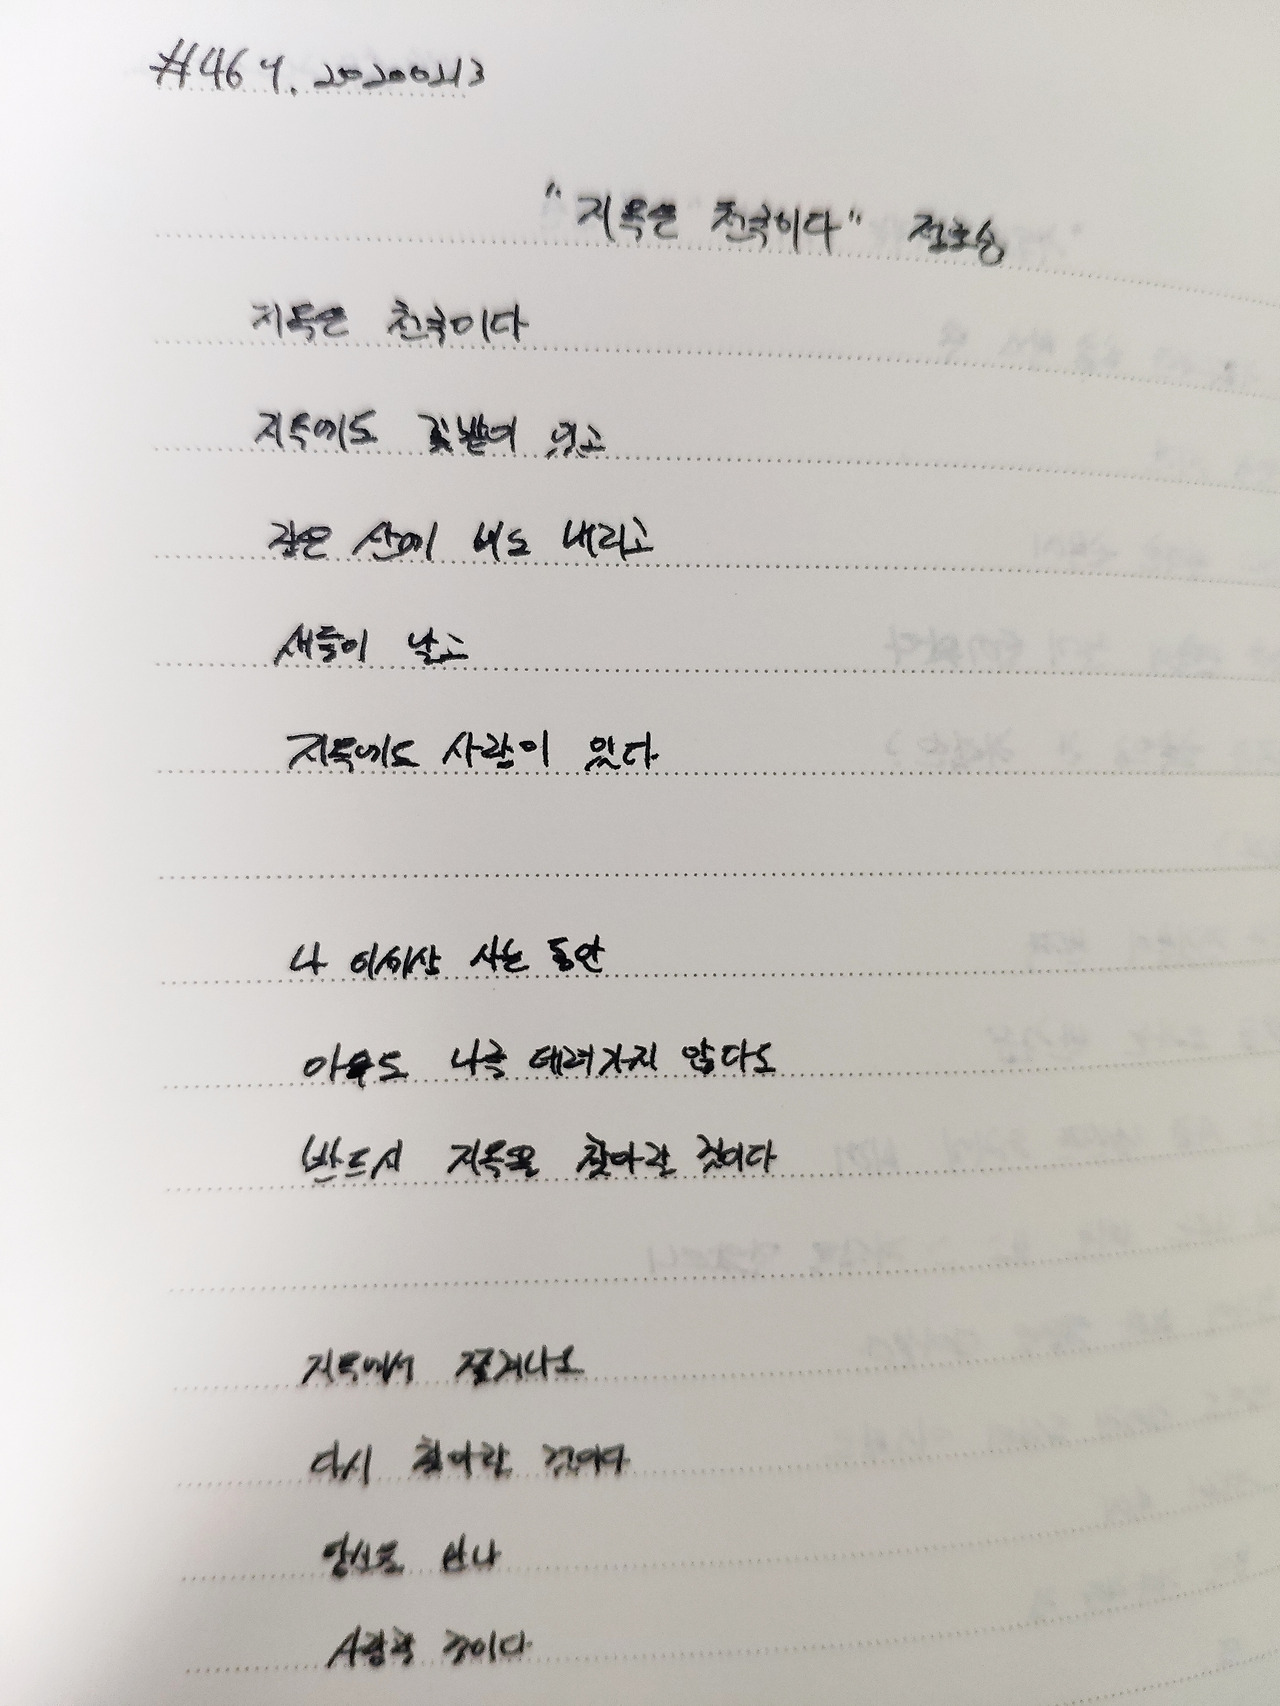 #464. 20200213
"지옥은 천국이다" 정호승
지옥은 천국이다
지옥에도 꽃밭이 있고
깊은 산에 비도 내리고
새들이 날고
지옥에도 사랑이 있다
나 이 세상 사는 동안
아무도 나를 데려가지 않다도
반드시 지옥을 찾아갈 것이다
지옥에서 쫓겨나도
다시 찾아갈 것이다
당신을 만나
사랑할 것이다